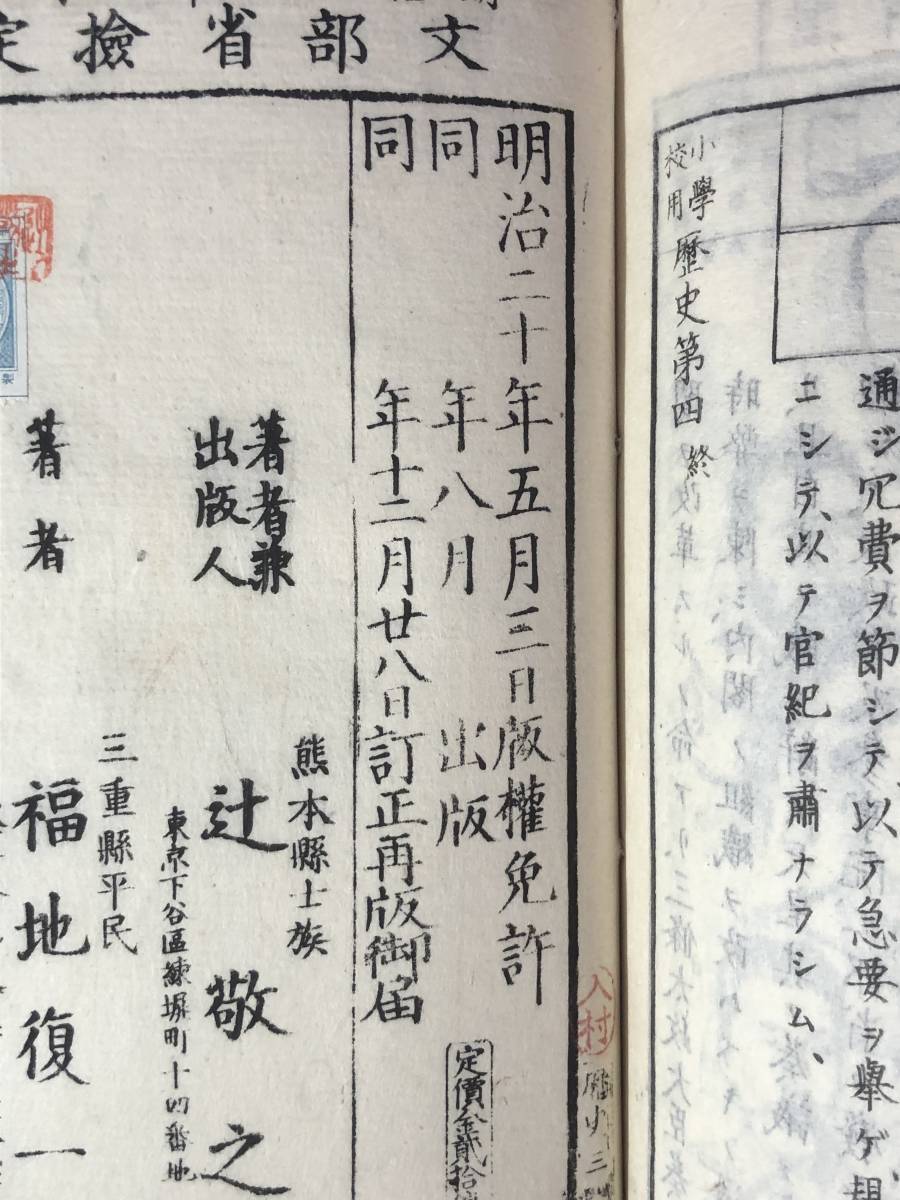 通ジ冗費ヲ節シテ、以テ急要ヲ擧ゲ
ニシテ、以テ官紀ヲ肅ナラシム、
小學校用歷史第四 終
文部省撿定
明治二十年五月三日版權免許
同年八月出版
同年十二月廿八日訂正再版御届
定價金貳拾
熊本縣士族
著者兼出版人
辻敬之
東京下谷區練塀町十四番地
三重縣平民
著者
福地復一
入村